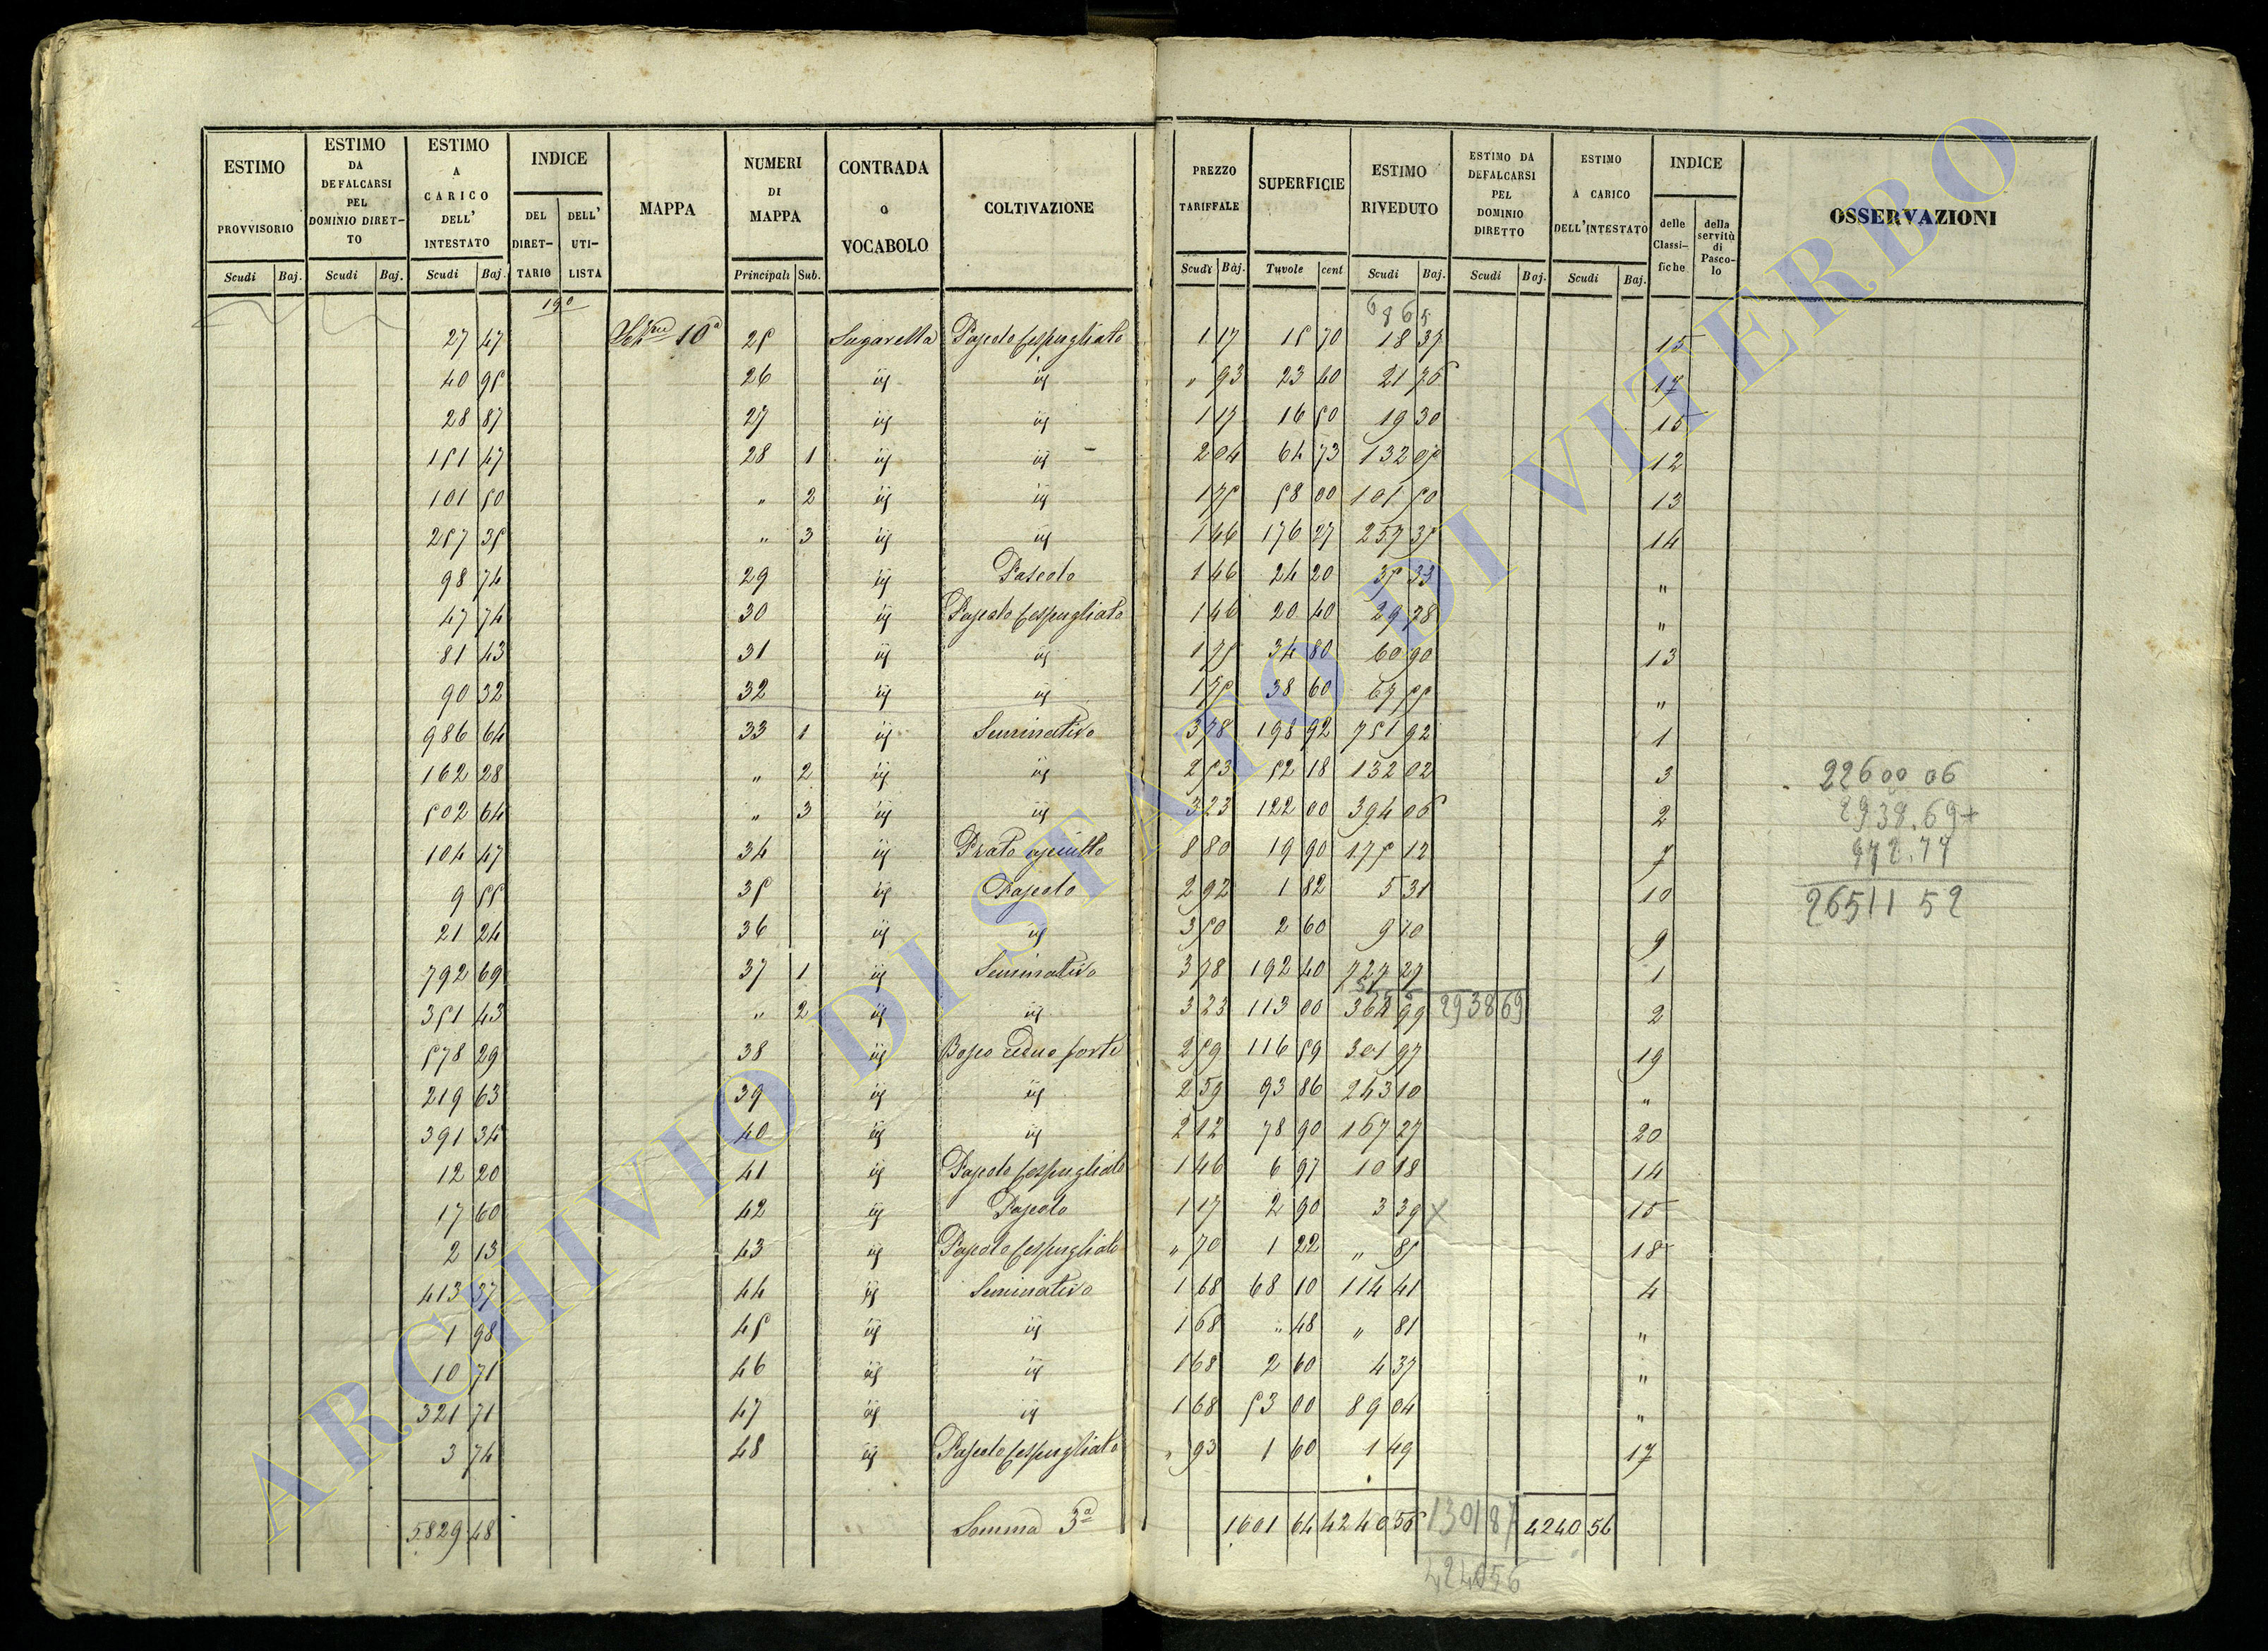 ESTIMO PROVVISORIO | ESTIMO DA DEFALCARSI PEL DOMINIO DIRET-TO | ESTIMO A CARICO DELL' INTESTATO | INDICE | MAPPA | NUMERI DI MAPPA | CONTRADA o VOCABOLO | COLTIVAZIONE | PREZZO TARIFFALE | SUPERFICIE | ESTIMO RIVEDUTO | ESTIMO DA DEFALCARSI PEL DOMINIO DIRETTO | ESTIMO A CARICO DELL'INTESTATO | INDICE | OSSERVAZIONI
DEL DIRET-TARIO | DELL' UTI-LISTA | delle Classi-fiche | della servitù di Pasco-lo
Scudi | Baj. | Scudi | Baj. | Scudi | Baj. | Principali | Sub. | Scudi | Baj. | Tavole | cent | Scudi | Baj. | Scudi | Baj. | Scudi | Baj.
190
27 47 | 10ª | 25 | Sugarella | Pascolo Cespugliato | 1 17 | 15 70 | 18 37 | 15
40 95 | 26 | id | id | " 93 | 23 40 | 21 76 | 17
28 87 | 27 | id | id | 1 17 | 16 50 | 19 30 | 15
151 47 | 28 | 1 | id | id | 2 04 | 64 73 | 132 05 | 12
101 50 | " | 2 | id | id | 1 75 | 58 00 | 101 50 | 13
257 35 | " | 3 | id | id | 1 46 | 176 27 | 257 35 | 14
98 74 | 29 | id | Pascolo | 1 46 | 24 20 | 35 33 | "
47 74 | 30 | id | Pascolo Cespugliato | 1 46 | 20 40 | 29 78 | "
81 43 | 31 | id | id | 1 75 | 34 80 | 60 90 | 13
90 32 | 32 | id | id | 1 75 | 38 60 | 67 55 | "
986 64 | 33 | 1 | id | Seminativo | 3 78 | 198 92 | 751 92 | 1
162 28 | " | 2 | id | id | 2 53 | 52 18 | 132 02 | 3
502 64 | " | 3 | id | id | 3 23 | 122 00 | 394 06 | 2
104 47 | 34 | id | Prato asciutto | 8 80 | 19 90 | 175 12 | 7
9 55 | 35 | id | Pascolo | 2 92 | 1 82 | 5 31 | 10
21 24 | 36 | id | id | 3 50 | 2 60 | 9 10 | 9
792 69 | 37 | 1 | id | Seminativo | 3 78 | 192 40 | 727 27 | 1
351 43 | " | 2 | id | id | 3 23 | 113 00 | 364 99 | 2938 69 | 2
578 29 | 38 | id | Bosco ceduo forte | 2 59 | 116 59 | 301 97 | 19
219 63 | 39 | id | id | 2 59 | 93 86 | 243 10 | "
391 34 | 40 | id | id | 2 12 | 78 90 | 167 27 | 20
12 20 | 41 | id | Pascolo Cespugliato | 1 46 | 6 97 | 10 18 | 14
17 60 | 42 | id | Pascolo | 1 17 | 2 90 | 3 39 | 15
2 13 | 43 | id | Pascolo Cespugliato | " 70 | 1 22 | " 85 | 18
413 37 | 44 | id | Seminativo | 1 68 | 68 10 | 114 41 | 4
1 98 | 45 | id | id | 1 68 | " 48 | " 81 | "
10 71 | 46 | id | id | 1 68 | 2 60 | 4 37 | "
321 71 | 47 | id | id | 1 68 | 53 00 | 89 04 | "
3 74 | 48 | id | Pascolo Cespugliato | " 93 | 1 60 | 1 49 | 17
5829 48 | Somma 3ª | 1601 64 | 4240 56 | 1301 87 | 4240 56
4240 56
22600 06
2938.69+
972.77
26511 52
ARCHIVIO DI STATO DI VITERBO